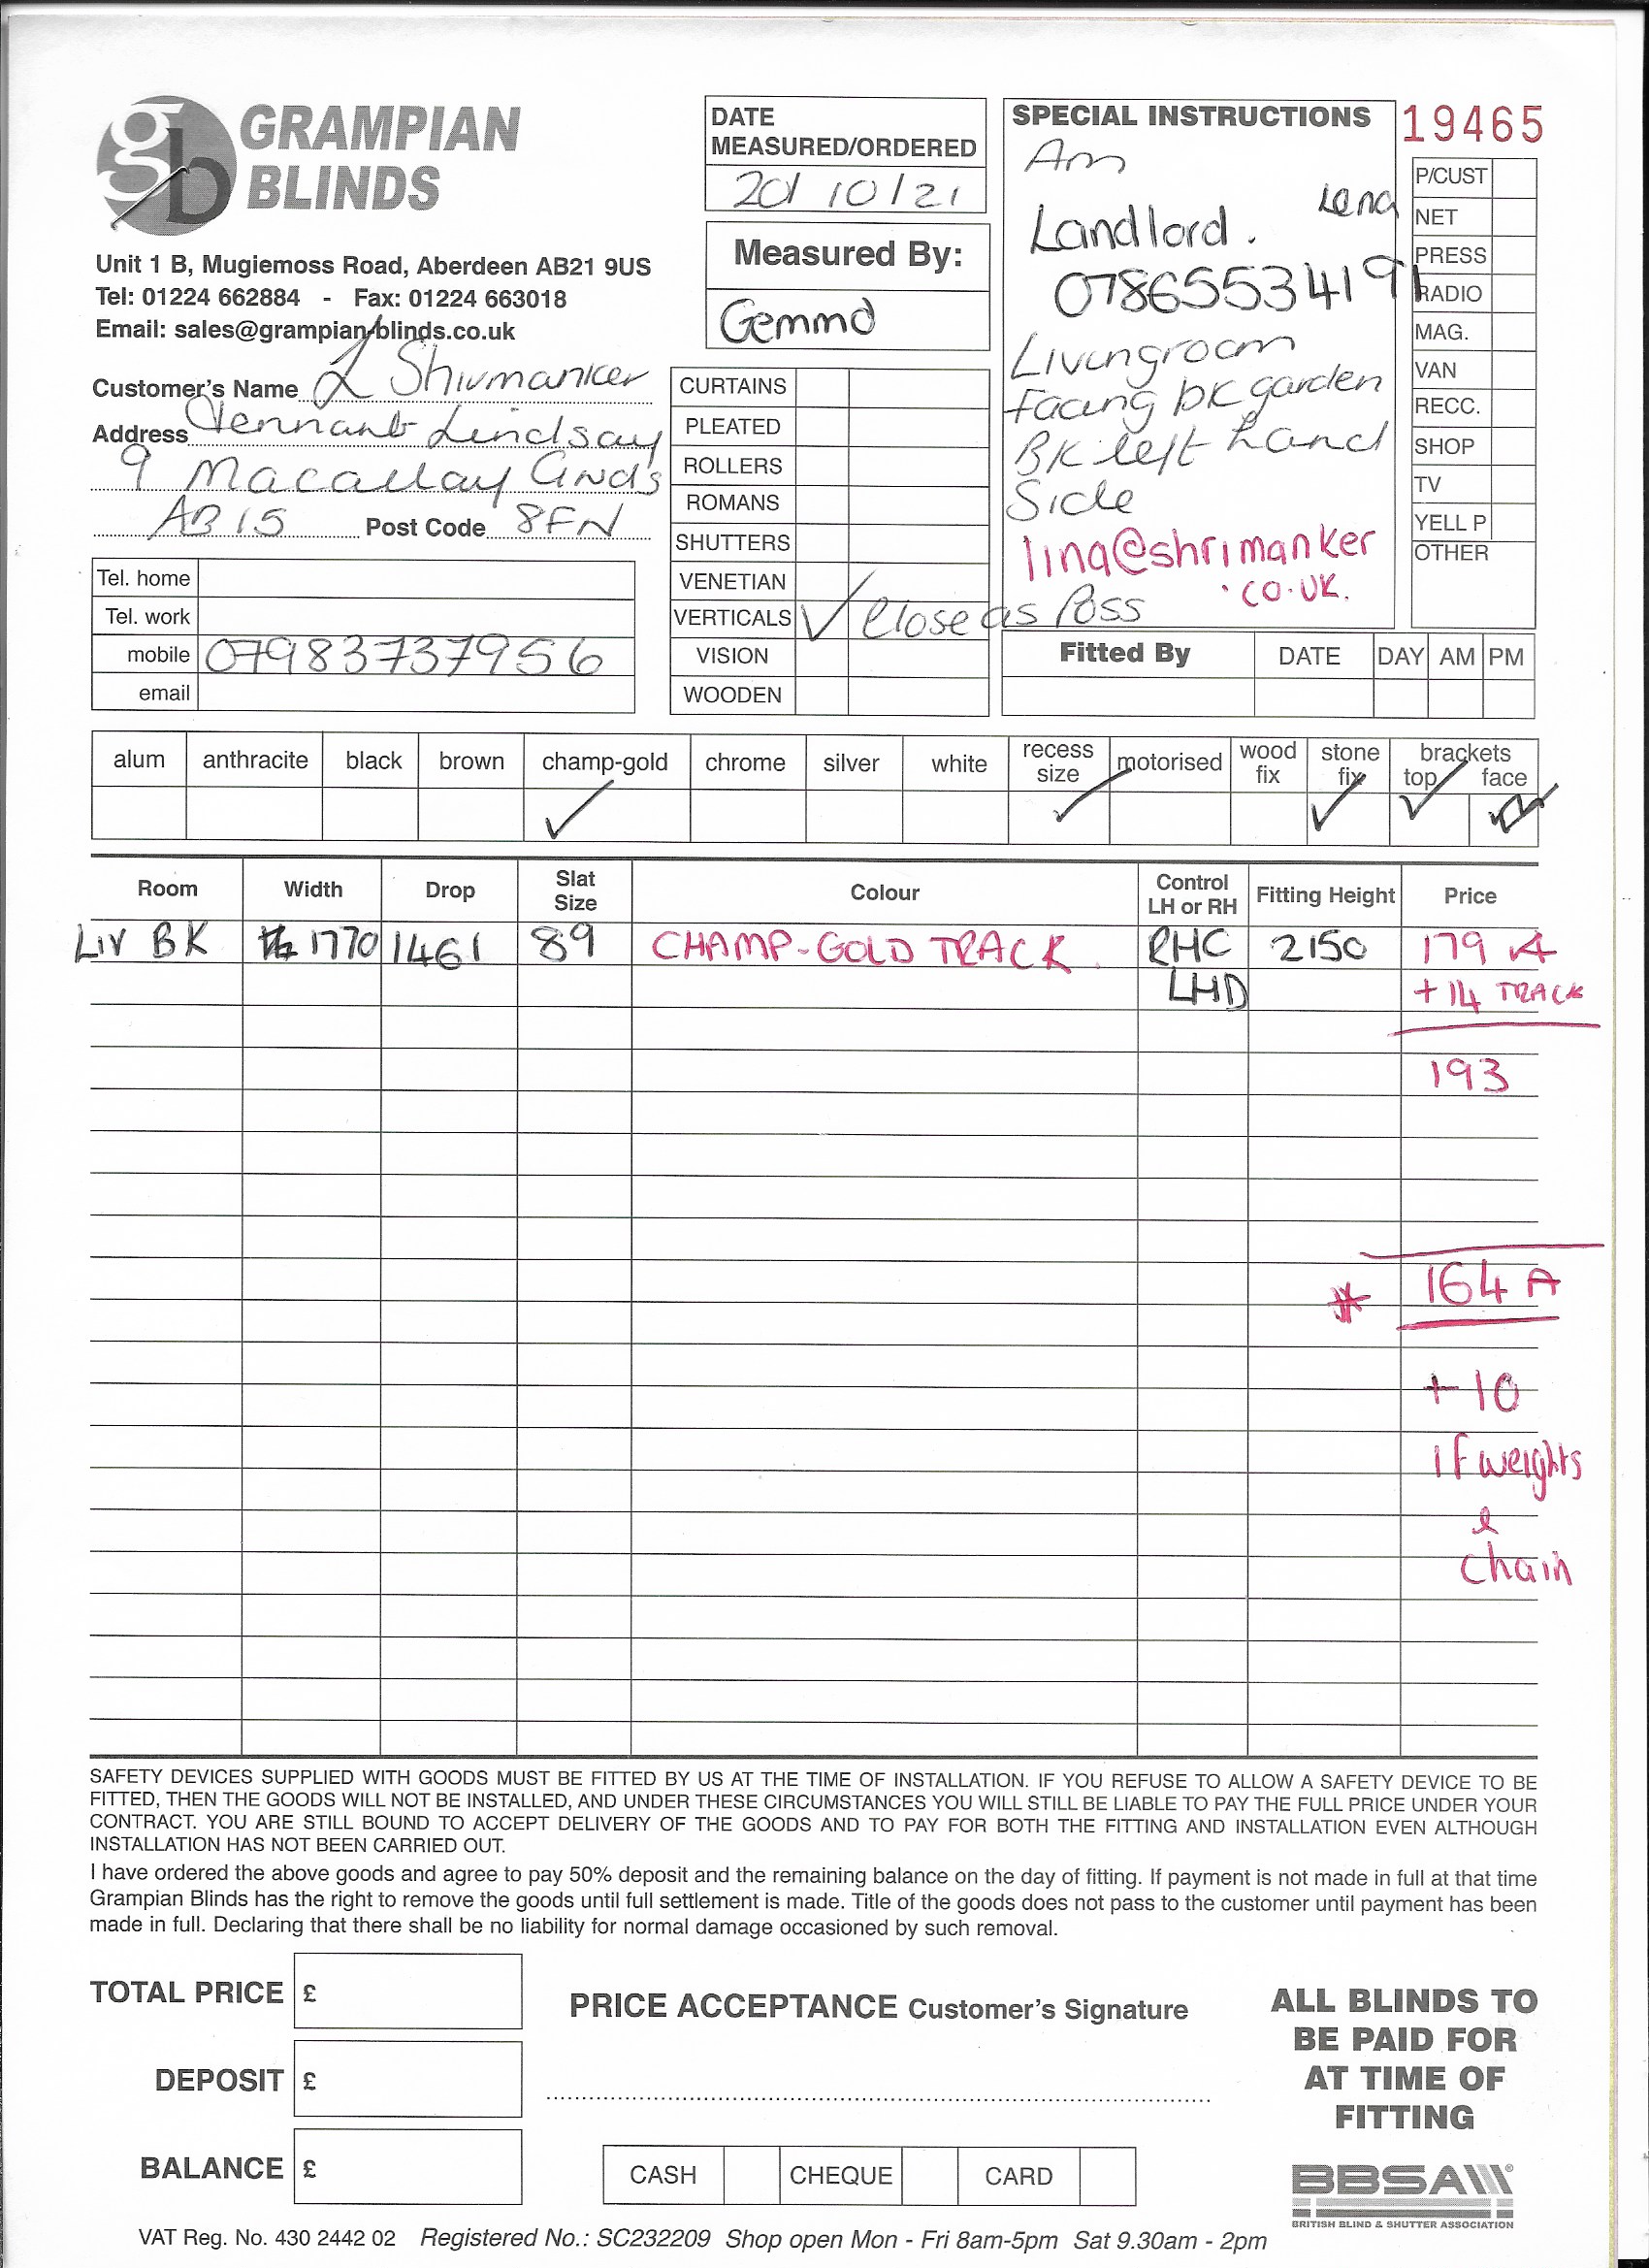 gb GRAMPIAN
BLINDS
Unit 1 B, Mugiemoss Road, Aberdeen AB21 9US
Tel: 01224 662884 - Fax: 01224 663018
Email: sales@grampian/blinds.co.uk
Customer's Name L Shivmanker
Address Tennant Lindsay
9 Macallay Gnds
AB15 Post Code 8FN
Tel. home
Tel. work
mobile 07983737956
email
DATE
MEASURED/ORDERED
20/10/21
Measured By:
Gemma
CURTAINS
PLEATED
ROLLERS
ROMANS
SHUTTERS
VENETIAN
VERTICALS ✓ Close as Poss
VISION
WOODEN
SPECIAL INSTRUCTIONS
Am
Lena
Landlord.
07865534191
Livingroom
facing bk garden
BK left hand
Side
lina@shrimanker
.co.uk.
Fitted By DATE DAY AM PM
19465
P/CUST
NET
PRESS
RADIO
MAG.
VAN
RECC.
SHOP
TV
YELL P
OTHER
alum anthracite black brown champ-gold chrome silver white recess size motorised wood fix stone fix brackets top face
✓ ✓ ✓ ✓
Room Width Drop Slat Size Colour Control LH or RH Fitting Height Price
LIV BK 1770 1461 89 CHAMP-GOLD TRACK RHC 2150 179 A
LHD + 14 TRACK
193
* 164 A
+ 10
if weights
&
chain
SAFETY DEVICES SUPPLIED WITH GOODS MUST BE FITTED BY US AT THE TIME OF INSTALLATION. IF YOU REFUSE TO ALLOW A SAFETY DEVICE TO BE
FITTED, THEN THE GOODS WILL NOT BE INSTALLED, AND UNDER THESE CIRCUMSTANCES YOU WILL STILL BE LIABLE TO PAY THE FULL PRICE UNDER YOUR
CONTRACT. YOU ARE STILL BOUND TO ACCEPT DELIVERY OF THE GOODS AND TO PAY FOR BOTH THE FITTING AND INSTALLATION EVEN ALTHOUGH
INSTALLATION HAS NOT BEEN CARRIED OUT.
I have ordered the above goods and agree to pay 50% deposit and the remaining balance on the day of fitting. If payment is not made in full at that time
Grampian Blinds has the right to remove the goods until full settlement is made. Title of the goods does not pass to the customer until payment has been
made in full. Declaring that there shall be no liability for normal damage occasioned by such removal.
TOTAL PRICE £
DEPOSIT £
BALANCE £
PRICE ACCEPTANCE Customer's Signature
CASH CHEQUE CARD
ALL BLINDS TO
BE PAID FOR
AT TIME OF
FITTING
BBSA
BRITISH BLIND & SHUTTER ASSOCIATION
VAT Reg. No. 430 2442 02 Registered No.: SC232209 Shop open Mon - Fri 8am-5pm Sat 9.30am - 2pm